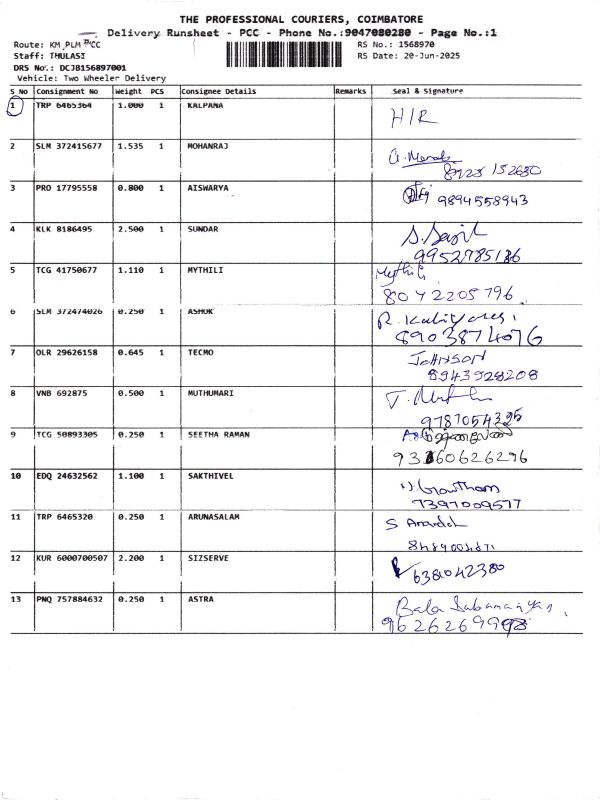 THE PROFESSIONAL COURIERS, COIMBATORE
Delivery Runsheet - PCC - Phone No.:9047080280 - Page No.:1
Route: KM,PLM PCC
RS No.: 1568970
Staff: THULASI
RS Date: 20-Jun-2025
DRS No.: DCJB156897001
Vehicle: Two Wheeler Delivery
S No Consignment No Weight PCS Consignee Details Remarks Seal & Signature
1 TRP 6465364 1.000 1 KALPANA H/R
2 SLM 372415677 1.535 1 MOHANRAJ
3 PRO 17795558 0.800 1 AISWARYA 9894558943
4 KLK 8186495 2.500 1 SUNDAR
9952785136
5 TCG 41750677 1.110 1 MYTHILI Mythili
8072205796
6 SLM 372474026 0.250 1 ASHOK
8903874076
7 OLR 29626158 0.645 1 TECMO JOHNSON
8943928208
8 VNB 692875 0.500 1 MUTHUMARI
9787054325
9 TCG 50893305 0.250 1 SEETHA RAMAN
9360626296
10 EDQ 24632562 1.100 1 SAKTHIVEL Gowtham
7397009577
11 TRP 6465320 0.250 1 ARUNASALAM
12 KUR 6000700507 2.200 1 SIZSERVE 6381042380
13 PNQ 757884632 0.250 1 ASTRA Bala